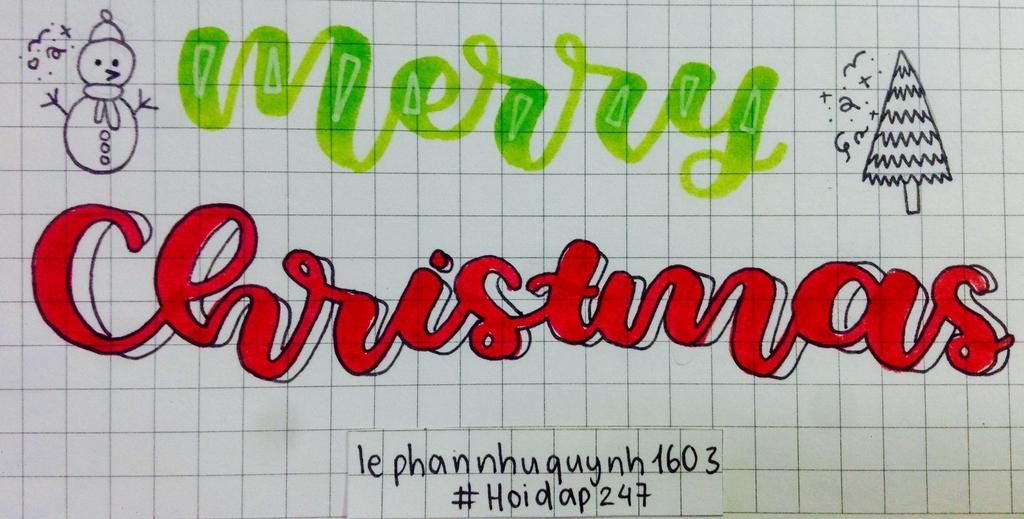 Merry
Christmas
lephannhuquynh1603
#Hoidap247